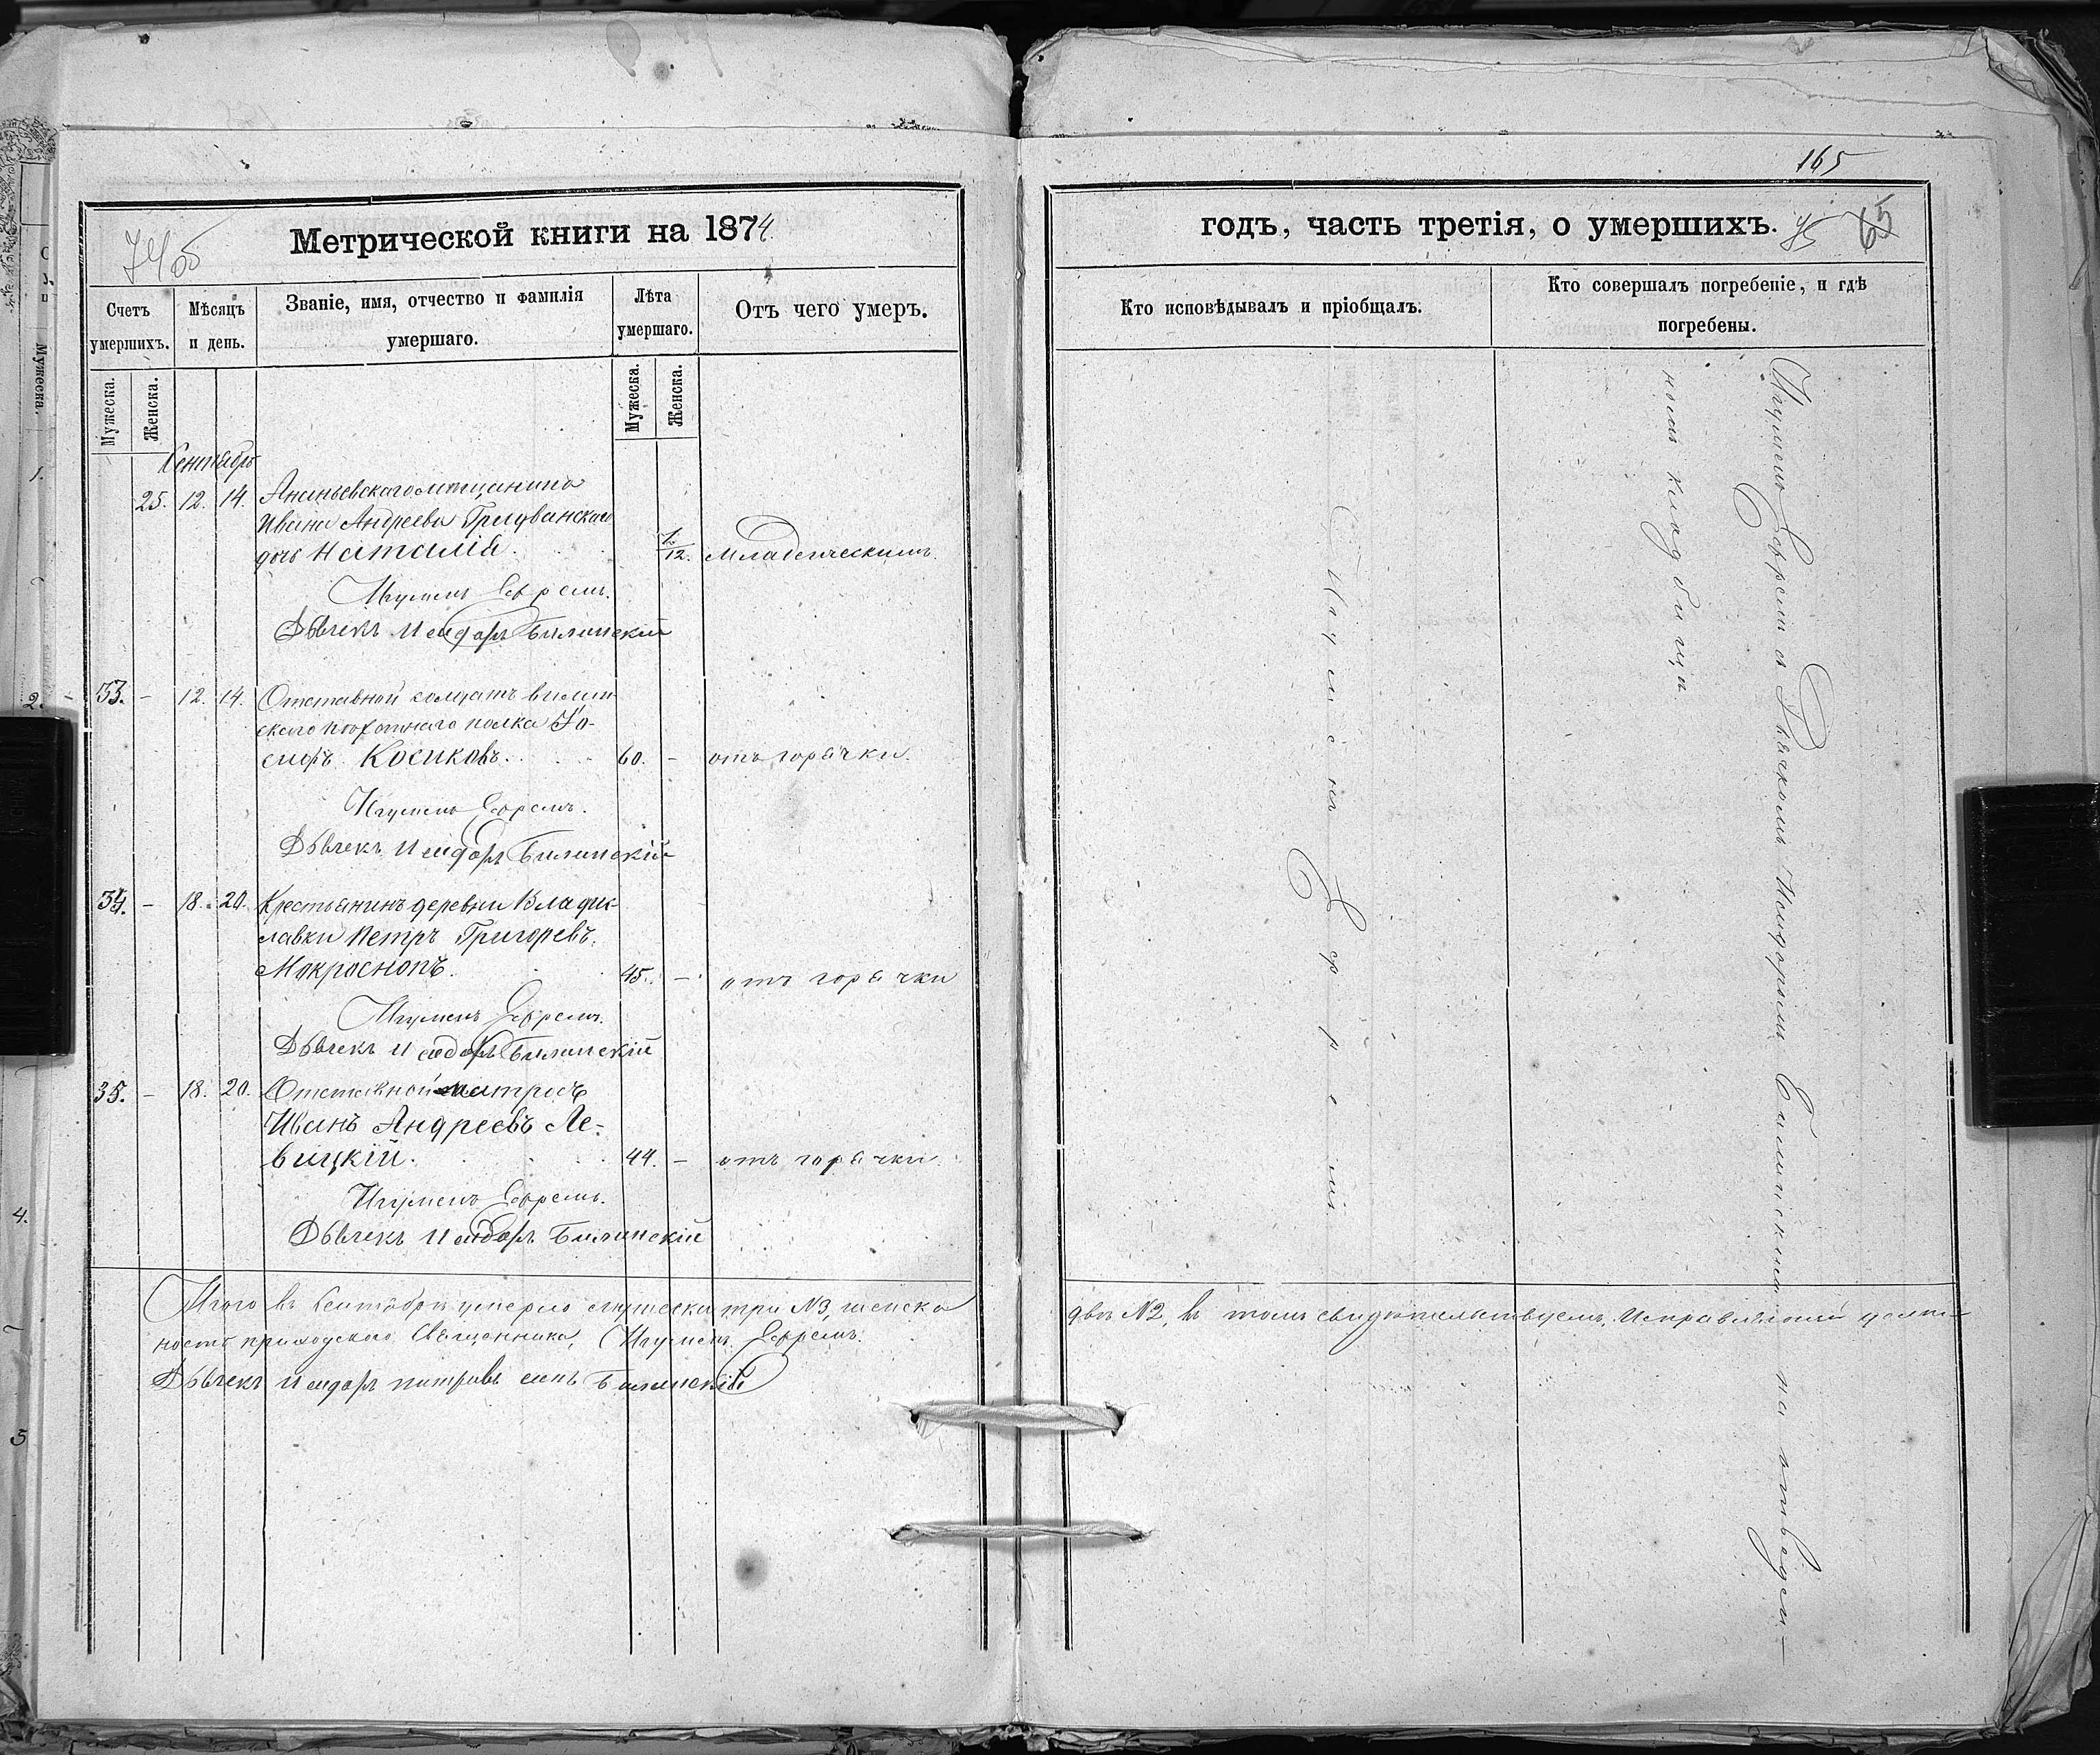 165
74 об
Метрической книги на 1874
годъ, часть третія, о умершихъ.
75
65
Счетъ умершихъ.
Мѣсяцъ и день.
Званіе, имя, отчество и фамилія умершаго.
Лѣта умершаго.
Отъ чего умеръ.
Кто исповѣдывалъ и пріобщалъ.
Кто совершалъ погребеніе, и гдѣ погребены.
Мужеска.
Женска.
Мужеска.
Женска.
Сентябрь
25. 12. 14. Ананьевскаго мѣщанина
Ивана Андреева
дочь Наталія. 1/12. Младенческимъ.
Игуменъ Ефремъ.
Дьячекъ Исидоръ Билинскій
33. – 12. 14. Отставной солдатъ Вилен-
скаго пѣхотнаго полка Іо-
сифъ Косиковъ. 60. – отъ горячки.
Игуменъ Ефремъ.
Дьячекъ Исидоръ Билинскій
34. – 18. 20. Крестьянинъ деревни Владис-
лавки Петръ Григорьевъ
Мокроснопъ. 45. – отъ горячки
Игуменъ Ефремъ.
Дьячекъ Исидоръ Билинскій
35. – 18. 20. Отставной матросъ
Иванъ Андреевъ Ле-
вицкій. 44. – отъ горячки.
Игуменъ Ефремъ.
Дьячекъ Исидоръ Билинскій
Игуменъ Ефремъ
Игуменъ Ефремъ съ Дьячкомъ Исидоромъ Билинскимъ на отведен-
номъ кладбищѣ
Итого въ Сентябрѣ умерло мужеска три №3, женска
двѣ №2, въ томъ свидѣтельствуемъ. Исправляющій долж-
ность приходскаго Священника, Игуменъ Ефремъ.
Дьячекъ Исидоръ Петровъ сынъ Билинскій